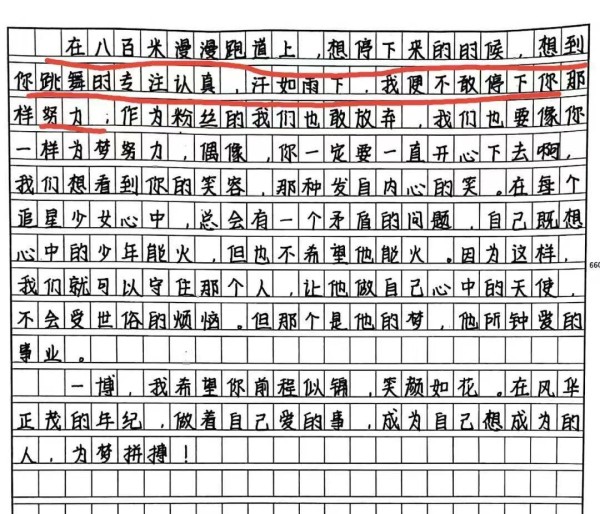 在八百米漫漫跑道上，想停下来的时候，想到
你跳舞时专注认真，汗如雨下，我便不敢停下你那
样努力，作为粉丝的我们也敢放弃，我们也要像你
一样为梦努力，偶像，你一定要一直开心下去啊，
我们想看到你的笑容，那种发自内心的笑。在每个
追星少女心中，总会有一个矛盾的问题，自己既想
心中的少年能火，但也不希望他能火。因为这样，
我们就可以守住那个人，让他做自己心中的天使，
不会受世俗的烦恼。但那个是他的梦，他所钟爱的
事业。
一博，我希望你前程似锦，笑颜如花。在风华
正茂的年纪，做着自己爱的事，成为自己想成为的
人，为梦拼搏！
660